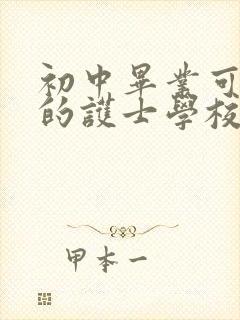 初中畢業可
的護士學校
甲本一